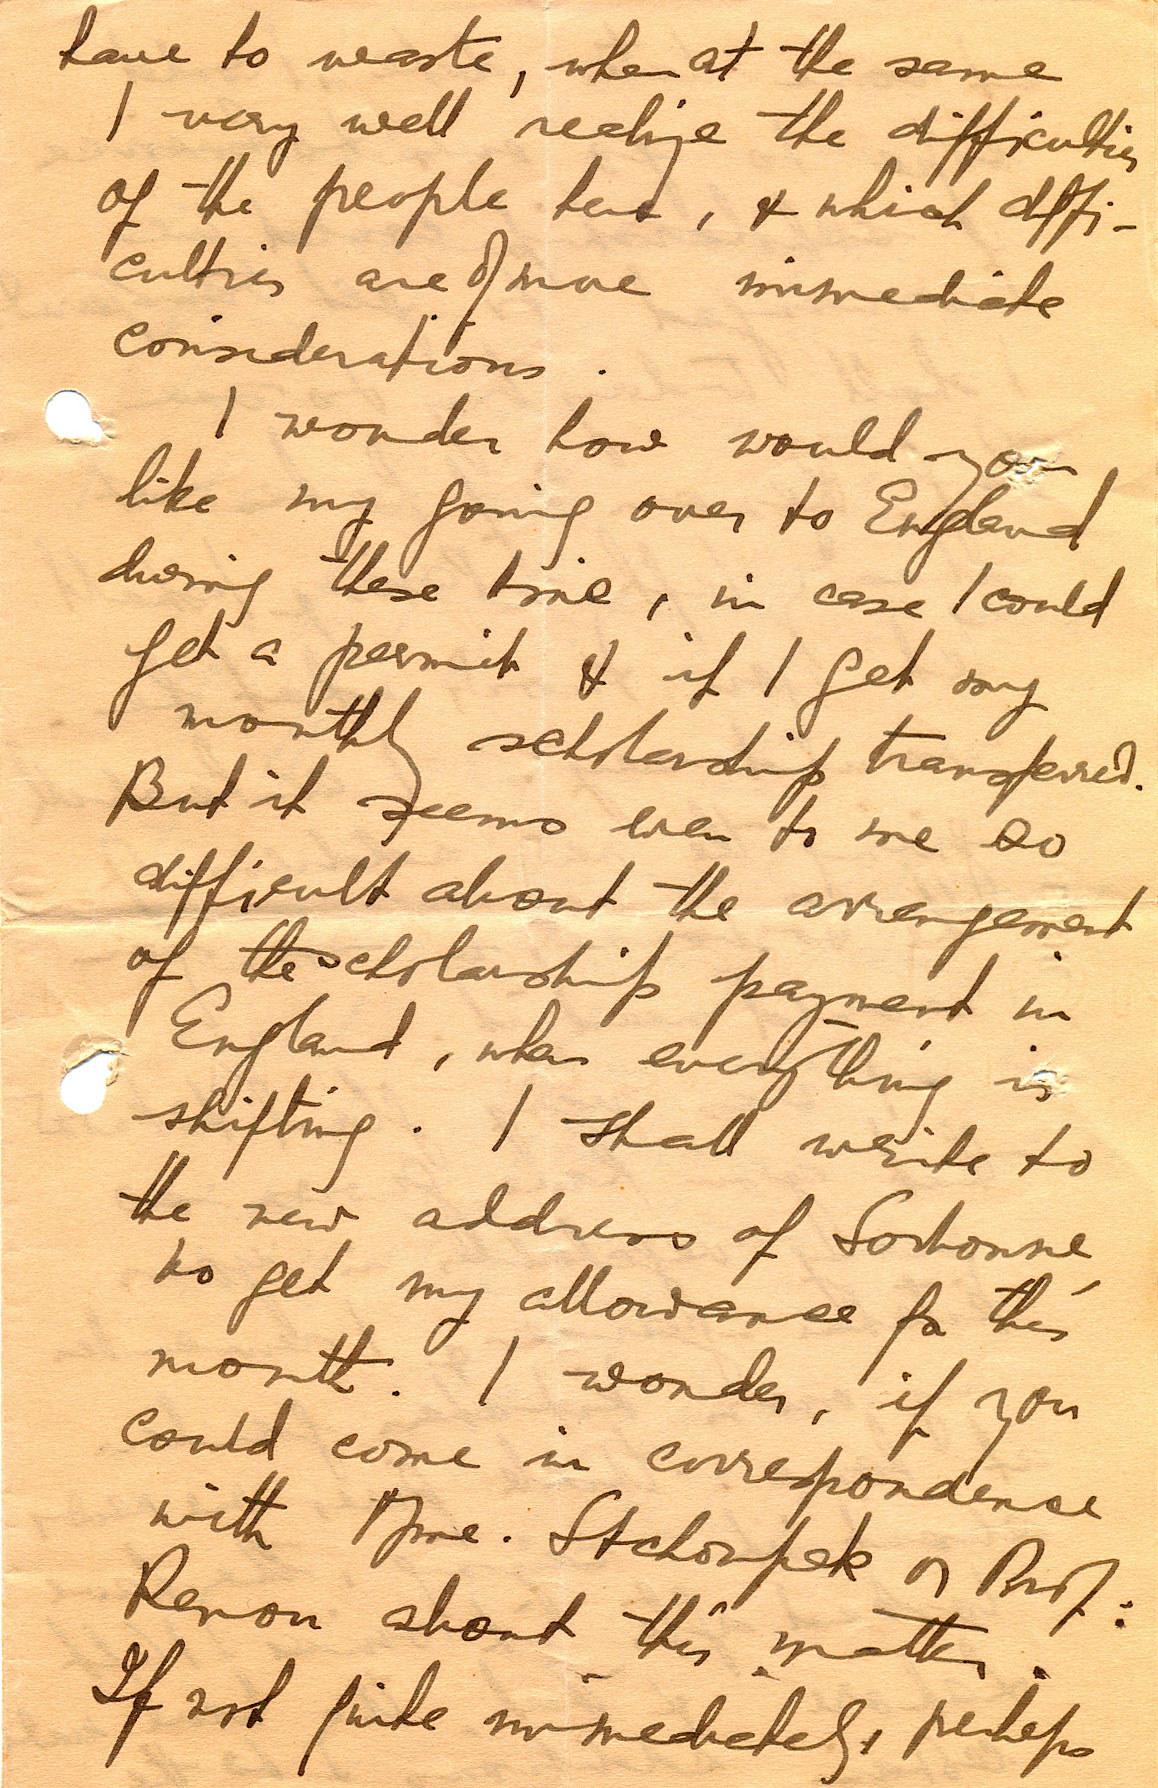 have to waste, when at the same
I very well realize the difficulties
of the people here, & which diffi-
culties are of more immediate
considerations.
I wonder how would you
like my going over to England
during these time, in case I could
get a permit & if I get my
monthly scholarship transferred.
But it seems even to me so
difficult about the arrangement
of the scholarship payment in
England, when everything is
shifting. I shall write to
the new address of Sorbonne,
to get my allowance for this
month. I wonder, if you
could come in correspondence
with Mme. Stchoupak or Prof:
Renou about this matter.
If not quite immediately, perhaps